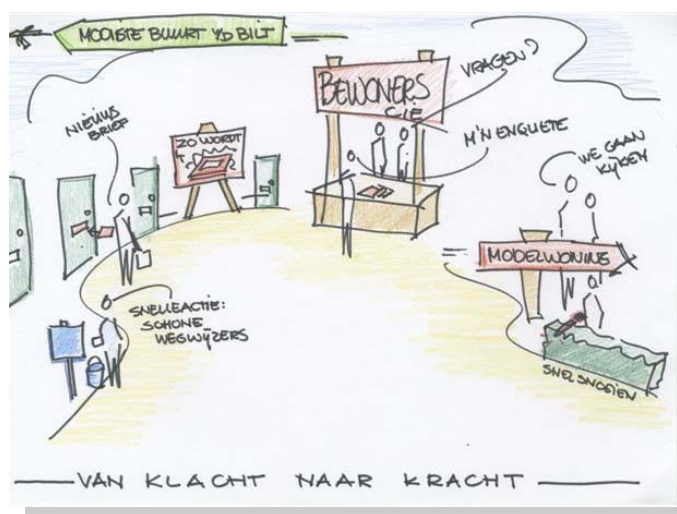 MOOISTE BUURT V/D BILT
NIEUWS
BRIEF
ZO WORDT
'T
BEWONERS
CIE
VRAGEN?
M'N ENQUETE
WE GAAN
KIJKEN
MODELWONING
SNELLEACTIE:
SCHONE
WEGWIJZERS
SNEL SNOEIEN
VAN KLACHT NAAR KRACHT